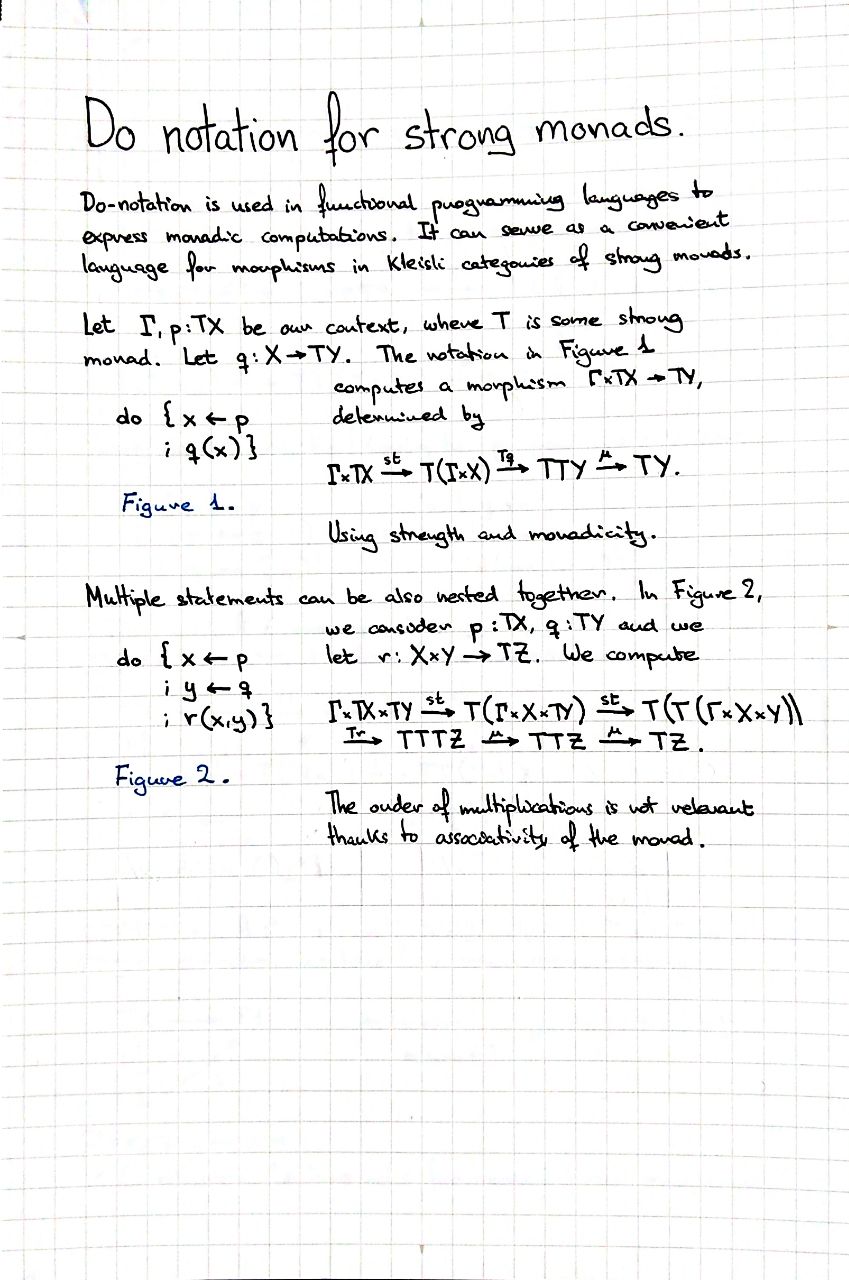 Do notation for strong monads.
Do-notation is used in functional programming languages to
express monadic computations. It can serve as a convenient
language for morphisms in Kleisli categories of strong monads.
Let Γ, p:TX be our context, where T is some strong
monad. Let q: X→TY. The notation in Figure 1
computes a morphism Γ×TX → TY,
do { x ← p
determined by
; q(x) }
Γ×TX —st→ T(Γ×X) —Tq→ TTY —μ→ TY.
Figure 1.
Using strength and monadicity.
Multiple statements can be also nested together. In Figure 2,
we consider p:TX, q:TY and we
do { x ← p
let r: X×Y → TZ. We compute
; y ← q
; r(x,y) }
Γ×TX×TY —st→ T(Γ×X×TY) —st→ T(T(Γ×X×Y))
—Tr→ TTTZ —μ→ TTZ —μ→ TZ.
Figure 2.
The order of multiplications is not relevant
thanks to associativity of the monad.